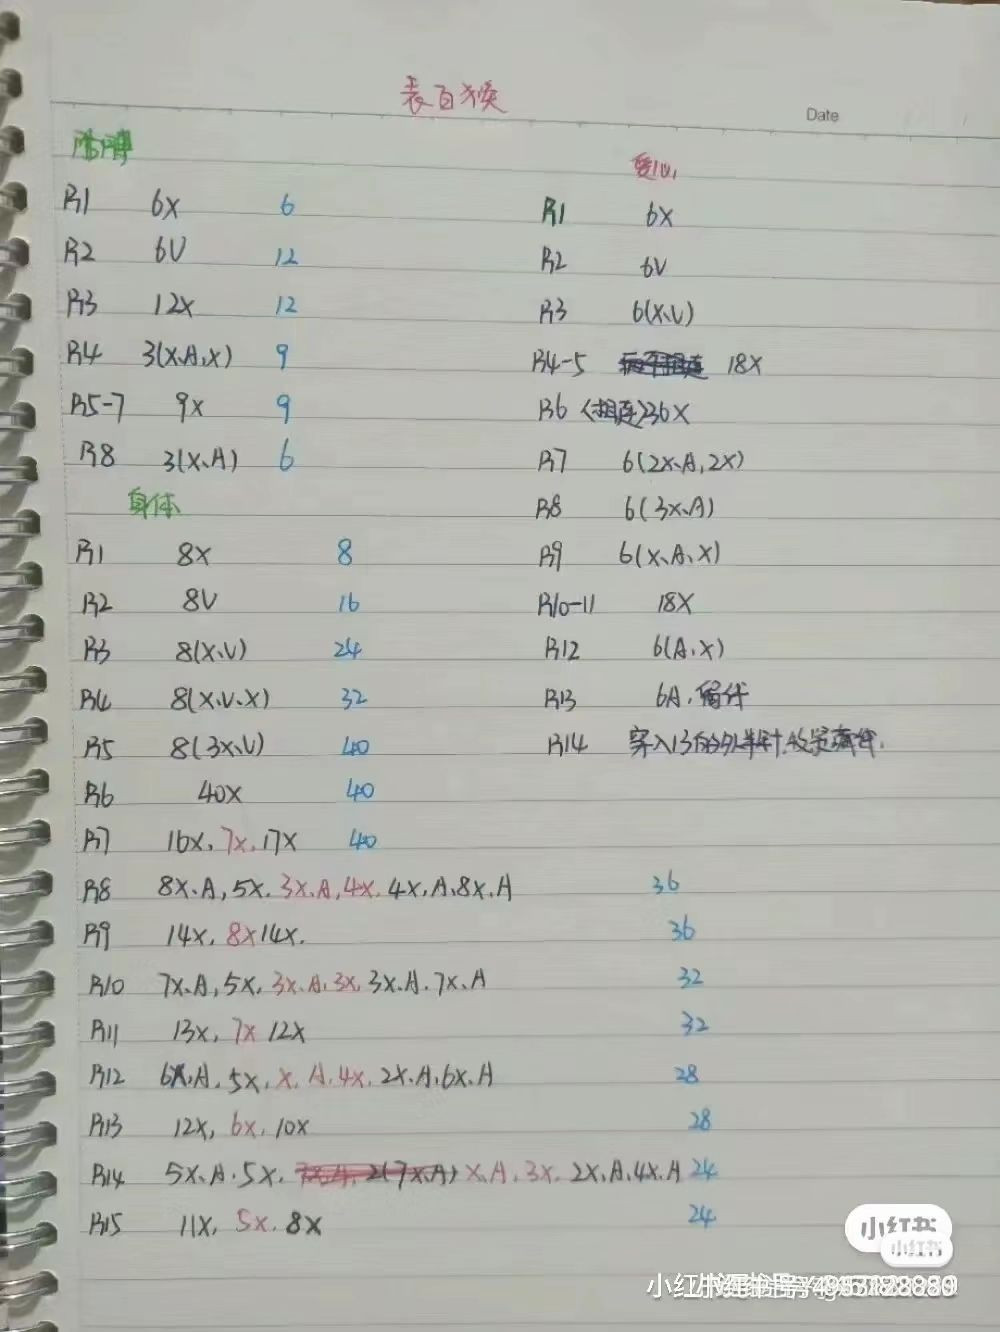 表白猴
Date
胳膊
R1 6X 6
R2 6V 12
R3 12X 12
R4 3(X.A.X) 9
R5-7 9X 9
R8 3(X.A) 6
身体
R1 8X 8
R2 8V 16
R3 8(X.V) 24
R4 8(X.V.X) 32
R5 8(3X.V) 40
R6 40X 40
R7 16X, 7X, 17X 40
R8 8X.A, 5X, 3X.A, 4X, 4X, A, 8X, A 36
R9 14X, 8X 14X. 36
R10 7X.A, 5X, 3X.A, 3X, 3X.A. 7X.A 32
R11 13X, 7X 12X 32
R12 6X.A, 5X, X, A, 4X, 2X.A, 6X.A 28
R13 12X, 6X, 10X 28
R14 5X.A. 5X, X.A, 3X, 2X.A, 4X.A 24
R15 11X, 5X, 8X 24
爱心
R1 6X
R2 6V
R3 6(X.V)
R4-5 18X
R6 (相连)36X
R7 6(2X.A, 2X)
R8 6(3X.A)
R9 6(X.A.X)
R10-11 18X
R12 6(A.X)
R13 6A. 留线
R14 穿入13的外半针.收紧藏线.
小红书
小红书